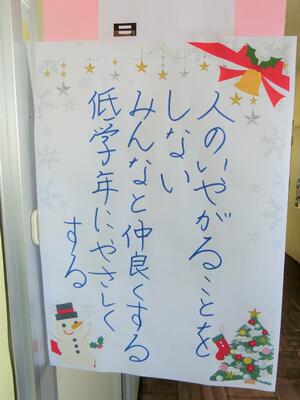 人のいやがることを
しない
みんなと仲良くする
低学年にやさしく
する